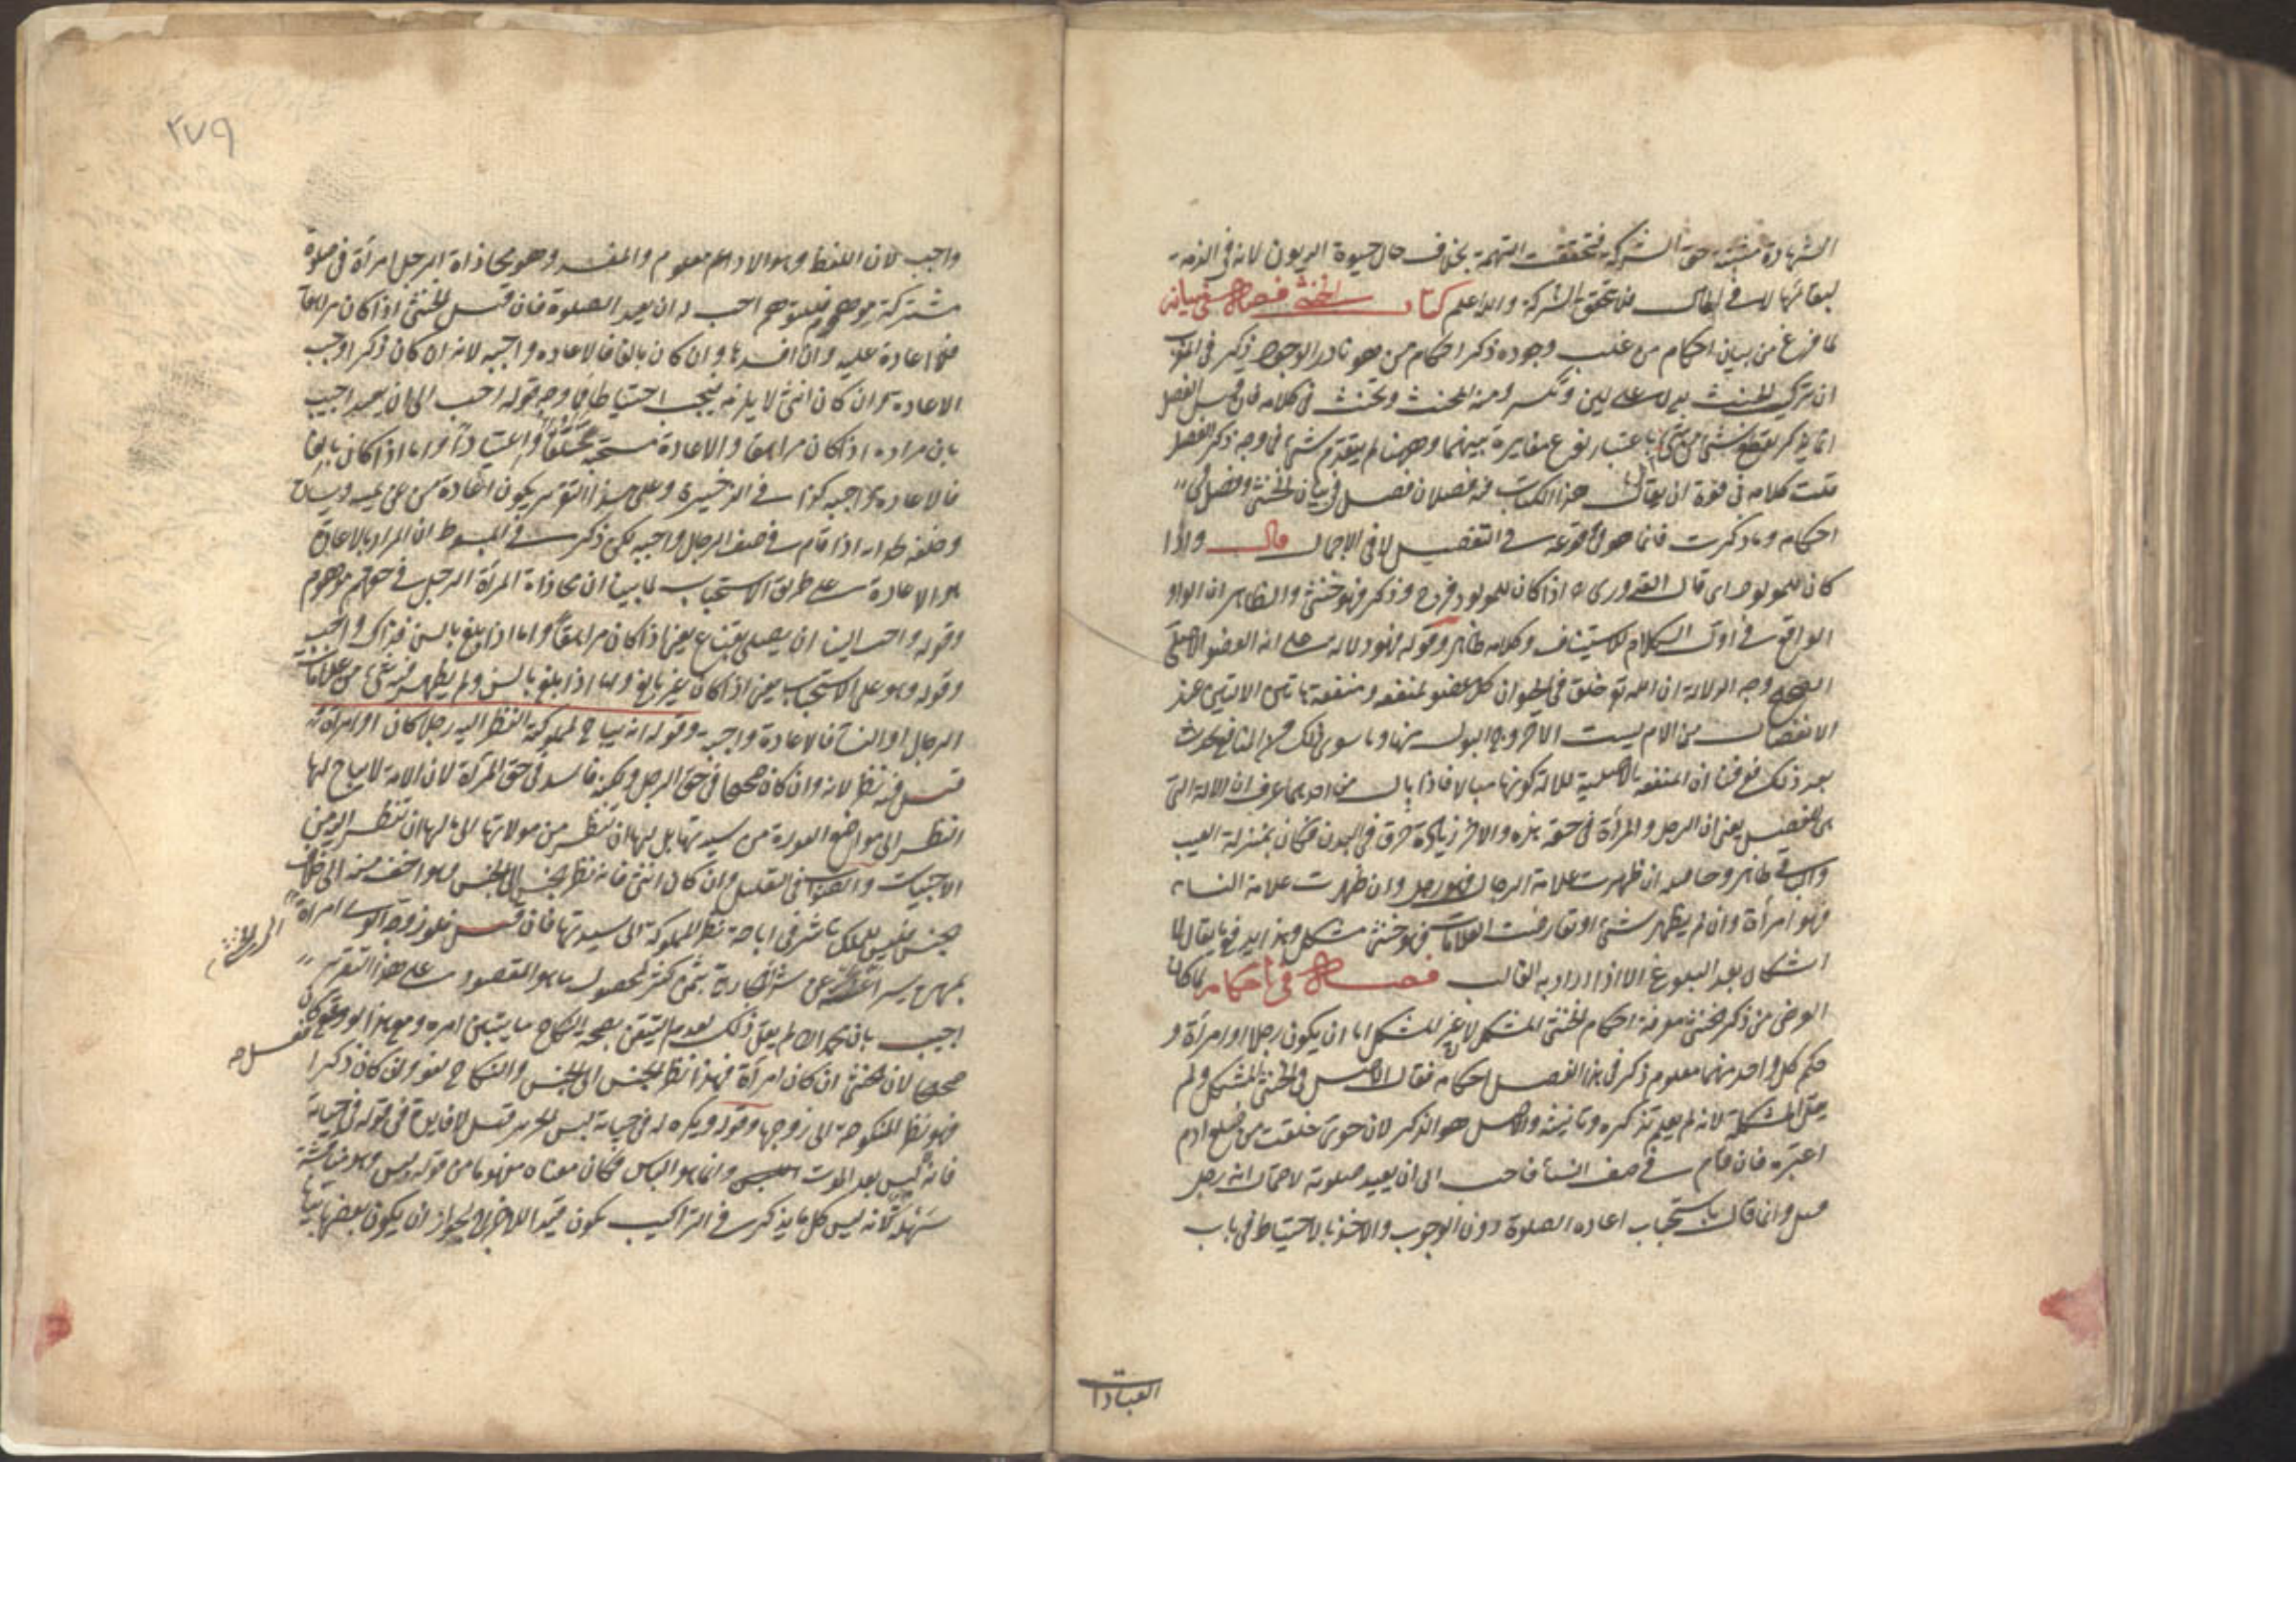 الشهادة مثبتة حق الشركة فتحققت التهمة بخلاف حال حيوة المديون لانه في الذمة
لبقائها لا في المال فلا تتحقق الشركة والله اعلم كتاب الخنثى فصل في بيانه
لما فرغ من بيان احكام من غلب وجوده ذكر احكام من هو نادر الوجود ذكر في المغرب
ان تركيب الخنث يدل على لين وتكسر ومنه المخنث وتخنث في كلامه فان قيل الفصل
انما يذكر لقطع شئ من شئ باعتبار نوع مغايرة بينهما وههنا لم يتقدم شئ فما وجه ذكر الفصل
قلت كلامه في قوة ان يقال هذا الكتاب فيه فصلان فصل في بيان الخنثى وفصل في
احكامه وما ذكرت فانما هو في وقوعه في التفصيل لا في الاجمال قال واذا
كان للمولود اى قال القدورى اذا كان للمولود فرج وذكر فهو خنثى والظاهر ان الواو
الواقع في اول الكلام للاستيناف وكلامه ظاهر وقوله فهو دلالة على انه العضو الاصلى
الصحيح وجه الدلالة ان الله تع خلق في الحيوان كل عضو لمنفعة ومنفعة هاتين الالتين عند
الانفصال من الام ليست الا خروج البول منها وما سوى ذلك من المنافع يحدث
بعد ذلك فعرفنا ان المنفعة الاصلية للالة كونها مبالا فاذا بال من احديهما عرف ان الالة التى
هى الفصل يعنى ان الرجل والمرأة في حقه هذه والاخر زيادة خرق في البدن فكان بمنزلة العيب
والباقى ظاهر وحاصله ان ظهرت علامة الرجال فهو رجل وان ظهرت علامة النساء
فهو امرأة وان لم يظهر شئ او تعارضت العلامات فهو خنثى مشكل
اشكال بعد البلوغ الا اذا اراد به الغالب فصل في احكامه لما كان
الغرض من ذكر الخنثى معرفة احكام الخنثى المشكل لان غير المشكل اما ان يكون رجلا او امرأة و
حكم كل واحد منهما معلوم ذكر في هذا الفصل احكامه فقال الاصل في الخنثى المشكل ولم
يقل المشكلة لانه لم يعلم تذكيره وتانيثه والاصل هو الذكر لان حوى خلقت من ضلع ادم
اعتبره فان قام في صف النساء فاحب الى ان يعيد صلوته لاحتمال انه رجل
قيل وانما قال باستحباب اعادة الصلوة دون الوجوب والاخذ بالاحتياط في باب
العبادا
٢٧٩
واجب لان اللفظ وهو الاداء معلوم والمفسد وهو محاذاة الرجل امرأة في صلوة
مشتركة موهوم فللتوهم احب له ان يعيد الصلوة فان قيل الخنثى اذا كان مراهقا
فلا اعادة عليه وان افسدها وان كان بالغا فالاعادة واجبة لانه ان كان ذكرا وجب
الاعادة وان كان انثى لا يلزمه فيجب احتياطا فما وجه قوله احب الى ان يعيد اجيب
بان مراده اذا كان مراهقا والاعادة مستحبة تخلقا واعتيادا واما اذا كان بالغا
فالاعادة واجبة كذا في الذخيرة وعلى هذا التقدير يكون اعادة من عن يمينه ويساره
وخلفه اذا قام في صف الرجال واجبة لكن ذكر في المبسوط ان المراد بالاعادة
هو الاعادة على طريق الاستحباب لما بينا ان محاذاة المرأة الرجل في حقهم موهوم
وقوله واحب الينا ان يصلى بقناع يعنى اذا كان مراهقا واما اذا بلغ بالسن فذاك واجب
وقوله وهو على الاستحباب يعنى اذا كان غير بالغ واما اذا بلغ بالسن ولم يظهر فيه شئ من علامات
الرجال او النساء فالاعادة واجبة وقوله انه يباح لمملوكته النظر اليه رجلا كان او امرأة
قيل فيه نظر لانه وان كان صحيحا في حق الرجل ولكنه فاسد في حق المرأة لان الامة لا يباح لها
النظر الى مواضع العورة من سيدتها بل لها ان تنظر من مولاتها الى ما لها ان تنظر اليه من
الاجنبيات والصواب في التعليل وان كان انثى فانه نظر الجنس الى الجنس وهو اخف منه الى خلاف
جنس فليس للملك تاثير في اباحة نظر المملوكة الى سيدتها فان قيل فلو زوج الولى امرأة
الى الخنثى
بمهر يسير اغنته عن شراء جارية بثمن كثير لحصول ما هو المقصود على هذا التقدير
اجيب بان محمدا لم يقل ذلك لعدم التيقن بصحة النكاح ما يتبين امره ومع هذا لو فعل كان
صحيحا لان الخنثى ان كان امرأة فهذا نظر الجنس الى الجنس والنكاح لغو وان كان ذكرا
فهو نظر المنكوحة الى زوجها وقوله ويكره له في حياته لبس الحرير قيل لا فايدة في قوله في حياته
فانه ليس بعد الموت وانما هو الباس فكان معناه مفهوما من قوله لبس وهو مناقشة
سهلة لانه ليس كل ما يذكر في التراكيب يكون قيدا للاخراج لجواز ان يكون بعضها بيانا